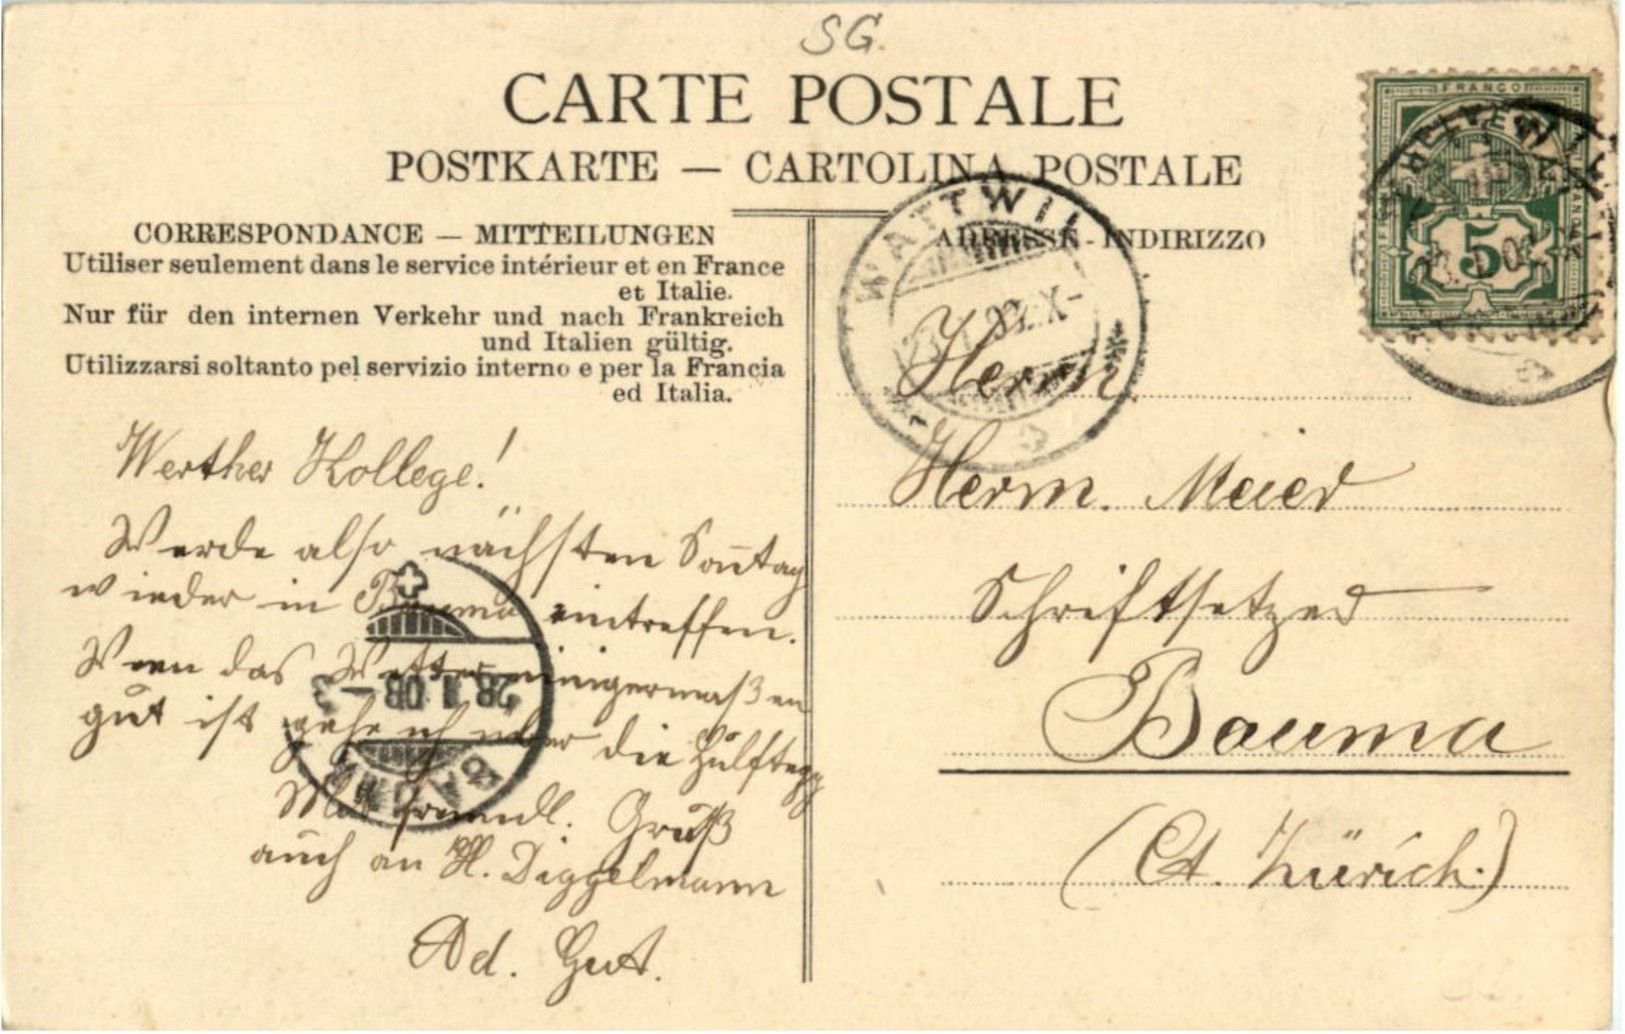 SG
CARTE POSTALE
POSTKARTE — CARTOLINA POSTALE
CORRESPONDANCE — MITTEILUNGEN
Utiliser seulement dans le service intérieur et en France
et Italie.
Nur für den internen Verkehr und nach Frankreich
und Italien gültig.
Utilizzarsi soltanto pel servizio interno e per la Francia
ed Italia.
Werther Kollege!
Werde also nächsten Sonntag
wieder in Bauma eintreffen.
Wenn das Wetter einigermaßen
gut ist gehe ich über die Hülftegg
Mit freundl. Gruß
auch an H. Diggelmann
Ad. Gut.
ADRESSE - INDIRIZZO
Herrn
Herm. Meier
Schriftsetzer
Bauma
(Ct. Zürich.)
FRANCO
HELVETIA
5
WATTWIL
BAUMA
28. I. 08 – 3